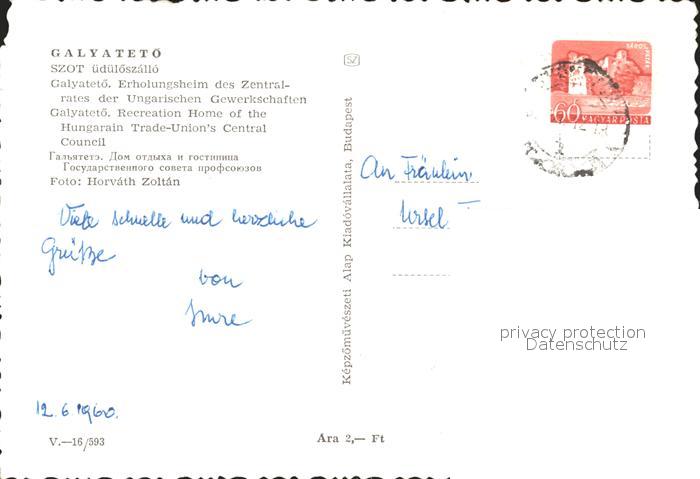 GALYATETŐ
SZOT üdülőszálló
Galyatető. Erholungsheim des Zentral-
rates der Ungarischen Gewerkschaften
Galyatető. Recreation Home of the
Hungarain Trade-Union's Central
Council
Гальятетэ. Дом отдыха и гостиница
Государственного совета профсоюзов
Foto: Horváth Zoltán
Viele schnelle und herzliche
Grüße
von
Imre
12.6.1960.
V.—16/593
Ara 2,— Ft
Képzőművészeti Alap Kiadóvállalata, Budapest
60 MAGYAR POSTA
An Fräulein
Ursel
privacy protection
Datenschutz